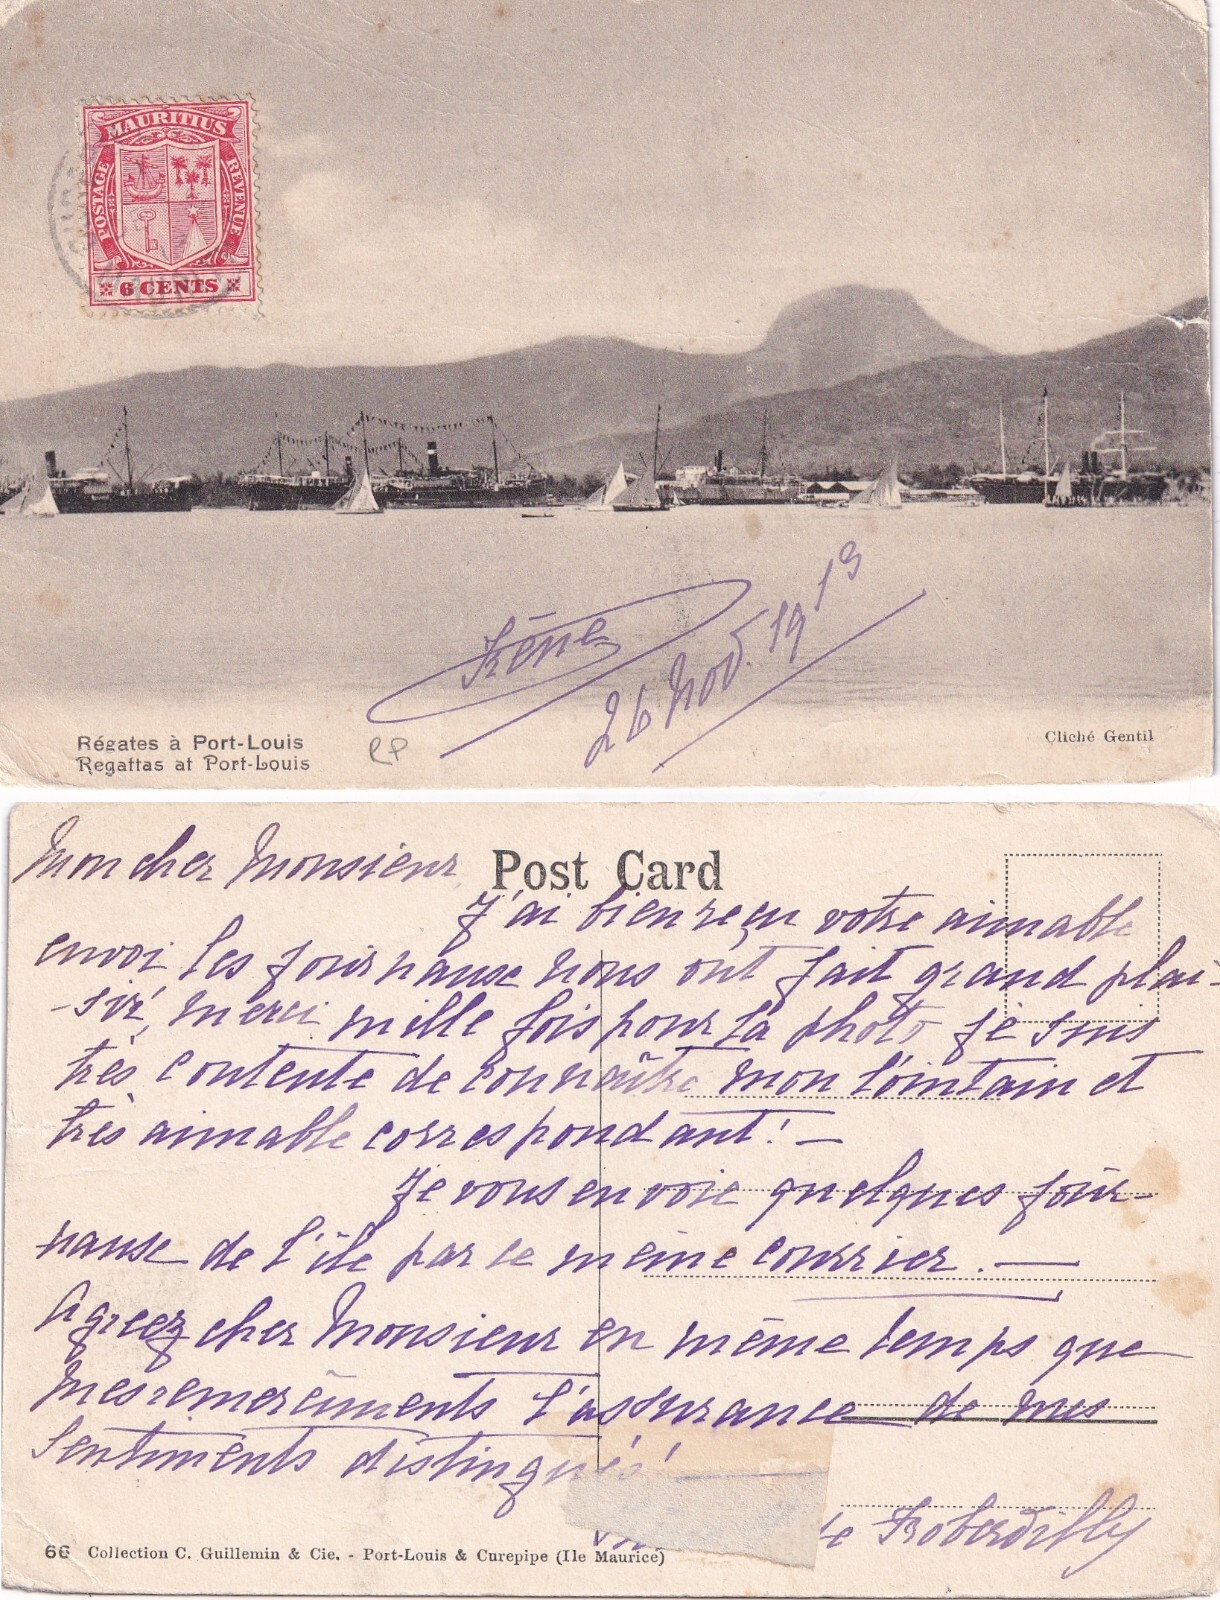 MAURITIUS
POSTAGE
REVENUE
6 CENTS
Irène
26 Nov. 1913
RP
Régates à Port-Louis
Regattas at Port-Louis
Cliché Gentil
Post Card
Mon cher Monsieur
J'ai bien reçu votre aimable
envoi les journause nous ont fait grand plai-
-siré, merci mille fois pour la photo je suis
très contente de connaître mon lointain et
très aimable correspondant! —
Je vous envoie quelques jour-
nause de l'île par le même courrier. —
Agreez cher Monsieur en même temps que
mes remerciments l'assurance de mes
Sentiments distingués!
de
66 Collection C. Guillemin & Cie. - Port-Louis & Curepipe (Ile Maurice)